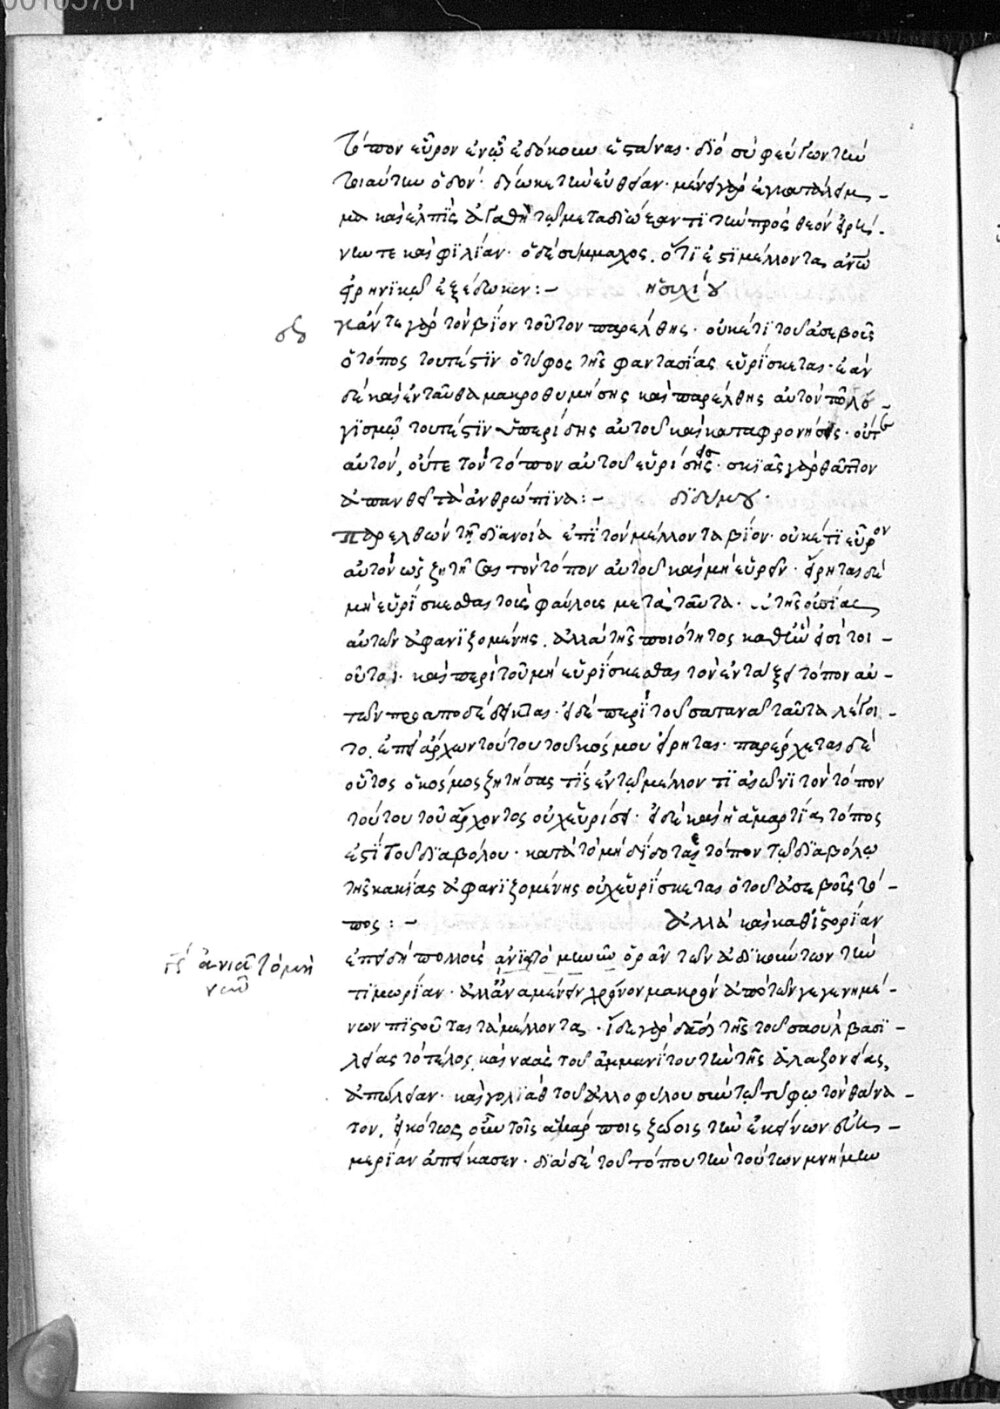 00105781
τόπον εὗρον ἐν ᾧ ἐδόκουν ἑστάναι· διὸ σὺ φεύγων τὴν
τοιαύτην ὁδόν· δίωκε τὴν εὐθεῖαν· μένει γὰρ ἐγκατάλειμ-
μα καὶ ἐλπὶς ἀγαθὴ τῷ μεταδιώξαντι τὴν πρὸς θεὸν εἰρή-
νην τε καὶ φιλίαν· ὁ δὲ σύμμαχος. ὅτι ἐστὶ μέλλοντα ἀν
εἰρηνικῷ ἐξέδωκεν:- ἡσυχίου
κἄν τε γὰρ τὸν βίον τοῦτον παρέλθῃς· οὐκέτι τοῦ ἀσεβοῦς
ὁ τόπος τουτέστιν ὁ τύφος τῆς φαντασίας εὑρίσκεται· ἐὰν
δὲ καὶ ἐνταῦθα μακροθυμήσῃς καὶ παρέλθῃς αὐτὸν τῷ λο-
γισμῷ τουτέστιν ὑπερίδῃς αὐτοῦ καὶ καταφρονήσῃς· οὔτε
αὐτόν, οὔτε τὸν τόπον αὐτοῦ εὑρήσεις· σκιᾶς γὰρ θᾶττον
ἀπανθεῖ τὰ ἀνθρώπινα:- διδύμου·
Παρελθὼν τῇ διανοίᾳ ἐπὶ τὸν μέλλοντα βίον· οὐκέτι εὗρον
αὐτὸν ὡς ζητῆσαι τὸν τόπον αὐτοῦ καὶ μὴ εὑρεῖν· εἴρηται δὲ
μὴ εὑρίσκεσθαι τοὺς φαύλους μετὰ ταῦτα· οὐ τῆς οὐσίας
αὐτῶν ἀφανιζομένης. ἀλλὰ τῆς ποιότητος καθ' ἣν εἰσὶ τοι-
οῦτοι· καὶ περὶ τοῦ μὴ εὑρίσκεσθαι τὸν ἐν τάξει τόπον αὐ-
τῶν προαποδέδεικται· εἰ δὲ περὶ τοῦ σατανᾶ ταῦτα λέγοι-
το. ἐπεὶ ἄρχων τούτου τοῦ κόσμου εἴρηται· παρέρχεται δὲ
οὗτος ὁ κόσμος ζητήσας τις ἐν τῷ μέλλοντι αἰῶνι τὸν τόπον
τούτου τοῦ ἄρχοντος οὐχ εὑρίσει· εἰ δὲ καὶ ἡ ἁμαρτία τόπος
ἐστὶ τοῦ διαβόλου· κατὰ τὸ μὴ δίδοται τόπον τῷ διαβόλῳ
τῆς κακίας ἀφανιζομένης οὐχ εὑρίσκεται ὁ τοῦ ἀσεβοῦς τό-
πος:- ἀλλὰ καὶ καθ' ἱστορίαν
ἐπειδὴ πολλοὺς ἀνιᾷ τὸ μὴ ὁρᾶν τῶν ἀδικούντων τὴν
τιμωρίαν· ἀλλ' ἀναμένειν χρόνον μακρὸν ἀπὸ τῶν γεγενημέ-
νων πιστοῦται τὰ μέλλοντα· ἴδε γὰρ φησὶ τῆς τοῦ σαοὺλ βασι-
λείας τὸ τέλος, καὶ ναὰς τοῦ ἀμμανίτου τὴν τῆς ἀλαζονείας,
ἀπώλειαν· καὶ γολιὰθ τοῦ ἀλλοφύλου σὺν τῷ τύφῳ τὸν θάνα-
τον. εἰκότως οὖν τοῖς ἀμαρ τὴν ἐκείνων εὐη-
μερίαν ἀπείκασεν· διὰ δὲ τοῦ τόπου τὴν τούτων μνήμην
ἀνιᾷ τὸ μὴ